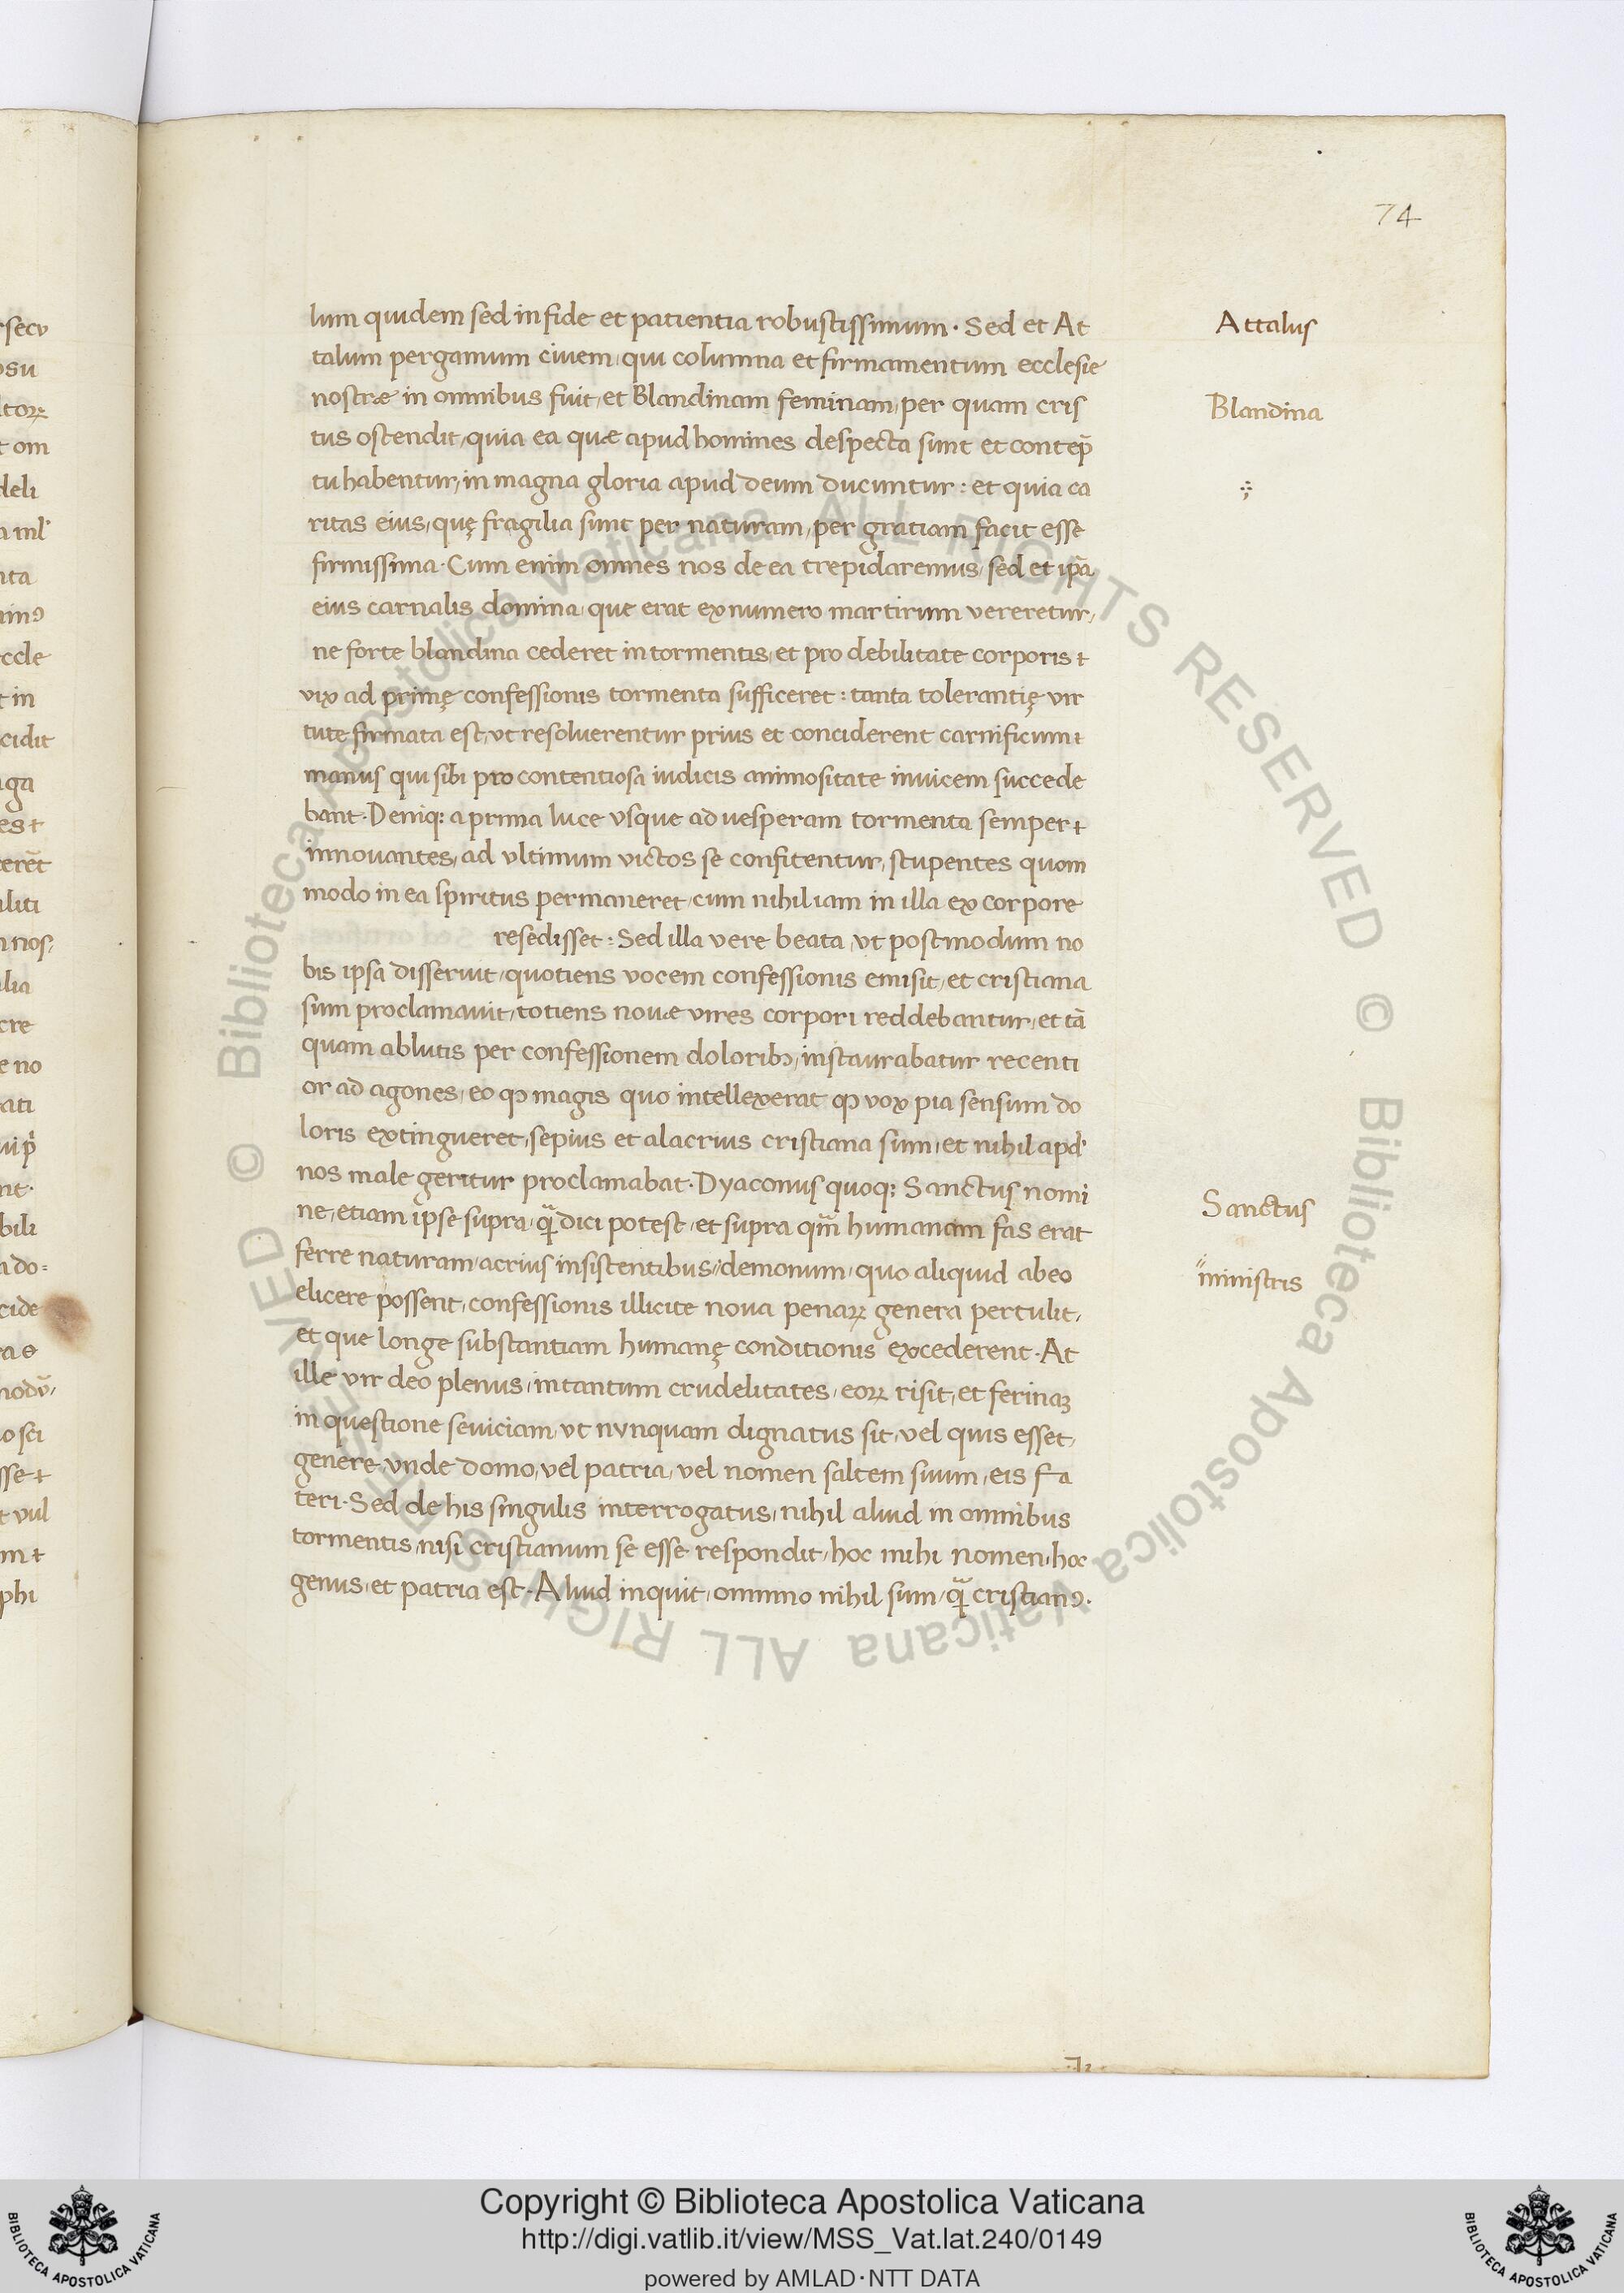 74
lum quidem sed in fide et patientia robustissimum · Sed et At
talum pergamum ciuem, qui columna et firmamentum ecclesie
nostræ in omnibus fuit, et Blandinam feminam, per quam cris
tus ostendit, quia ea quæ apud homines despecta sunt et contep̄
tu habentur, in magna gloria apud deum ducuntur : et quia ca
ritas eius, quę fragilia sunt per naturam, per gratiam facit esse
firmissima · Cum enim omnes nos de ea trepidaremus, sed et ip̄a
eius carnalis domina, que erat ex numero martirum vereretur,
ne forte blandina cederet in tormentis, et pro debilitate corporis
vix ad primę confessionis tormenta sufficeret : tanta tolerantię vir
tute firmata est, ut resoluerentur prius et conciderent carnificum
manus qui sibi pro contentiosa iudicis animositate inuicem succede
bant · Deniq; a prima luce vsque ad uesperam tormenta semper
innouantes, ad vltimum victos se confitentur, stupentes quom
modo in ea spiritus permaneret, cum nihil iam in illa ex corpore
resedisset : Sed illa vere beata, vt postmodum no
bis ipsa disseruit, quotiens vocem confessionis emisit, et cristiana
sum proclamauit, totiens nouæ vires corpori reddebantur, et tā
quam ablutis per confessionem doloribꝫ, instaurabatur recenti
or ad agones, eo ꝙ magis quo intellexerat ꝙ vox pia sensum do
loris extingueret, sepius et alacrius cristiana sum, et nihil apd'
nos male geritur proclamabat · Dyaconus quoq; Sanctus nomi
ne, etiam ipse supra, q̄ dici potest, et supra qm̄ humanam fas erat
ferre naturam, acrius insistentibus, demonum, quo aliquid abeo
elicere possent, confessionis illicite noua penaꝝ genera pertulit,
et que longe substantiam humanę conditionis excederent · At
ille vir deo plenus, intantum crudelitates, eoꝝ risit, et ferinaꝫ
in questione seuiciam, vt nvnquam dignatus sit, vel quis esset,
genere, vnde domo, vel patria, vel nomen saltem suum, eis fa
teri · Sed de his singulis interrogatus, nihil aliud in omnibus
tormentis, nisi cristianum se esse respondit, hoc mihi nomen, hoc
genus, et patria est · Aliud inquit, omnino nihil sum, q̄ cristianꝰ ·
Attalus
Blandina
Sanctus
ministris
Copyright © Biblioteca Apostolica Vaticana
http://digi.vatlib.it/view/MSS_Vat.lat.240/0149
powered by AMLAD·NTT DATA
BIBLIOTECA APOSTOLICA VATICANA
BIBLIOTECA APOSTOLICA VATICANA
© Biblioteca Apostolica Vaticana ALL RIGHTS RESERVED © Biblioteca Apostolica Vaticana ALL RIGHTS RESERVED